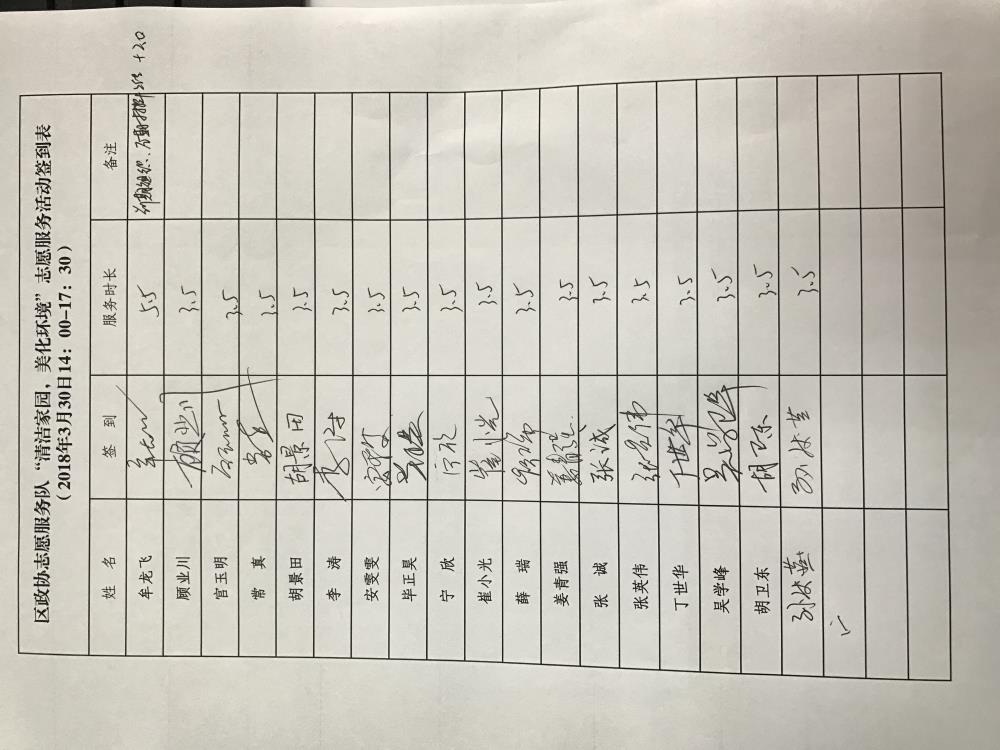 区政协志愿服务队“清洁家园，美化环境”志愿服务活动签到表
（2018年3月30日14：00-17：30）
姓 名 签 到 服务时长 备注
牟龙飞 5.5 +20
顾业川 顾业川 3.5
官玉明 3.5
常 真 常真 3.5
胡景田 胡景田 3.5
李 涛 李涛 3.5
安雯雯 3.5
毕正昊 3.5
宁 欣 宁欣 3.5
崔小光 崔小光 3.5
薛 瑞 薛瑞 3.5
姜青强 姜青强 3.5
张 诚 张诚 3.5
张英伟 张英伟 3.5
丁世华 丁世华 3.5
吴学峰 3.5
胡卫东 3.5
3.5